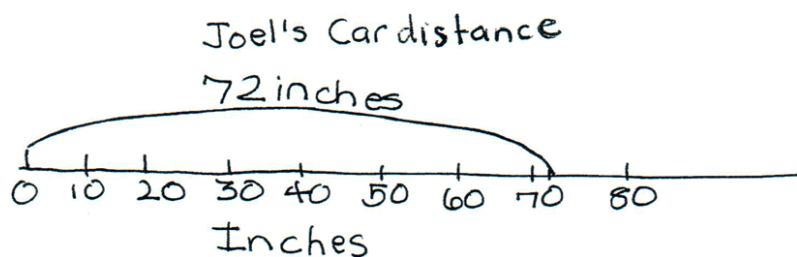 Joel's Car distance
72 inches
0 10 20 30 40 50 60 70 80
Inches